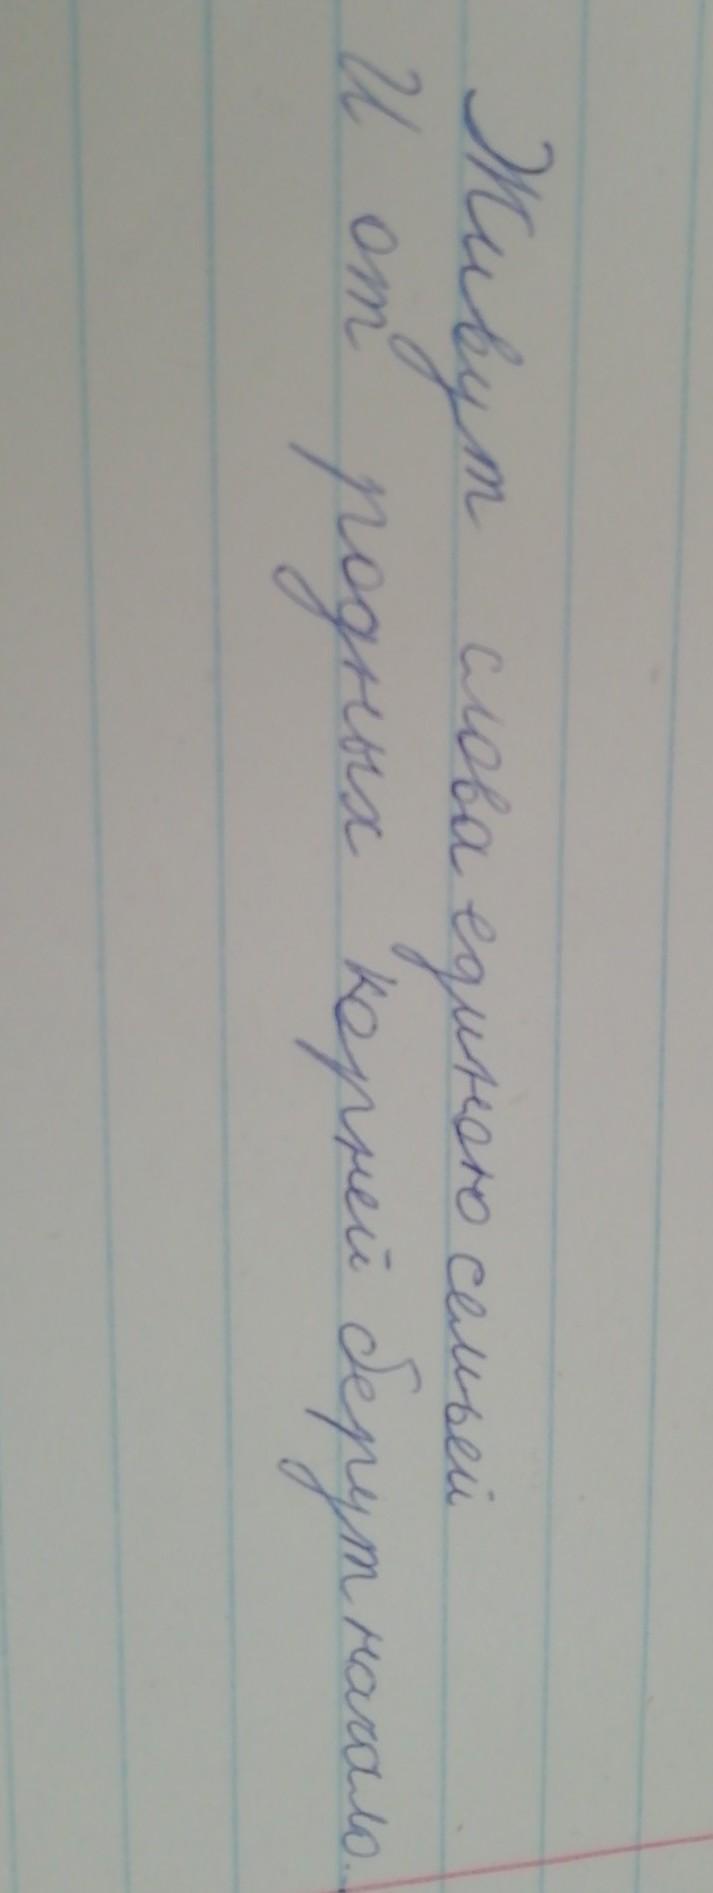 Живут слова единою семьей
И от родных корней берут начало...